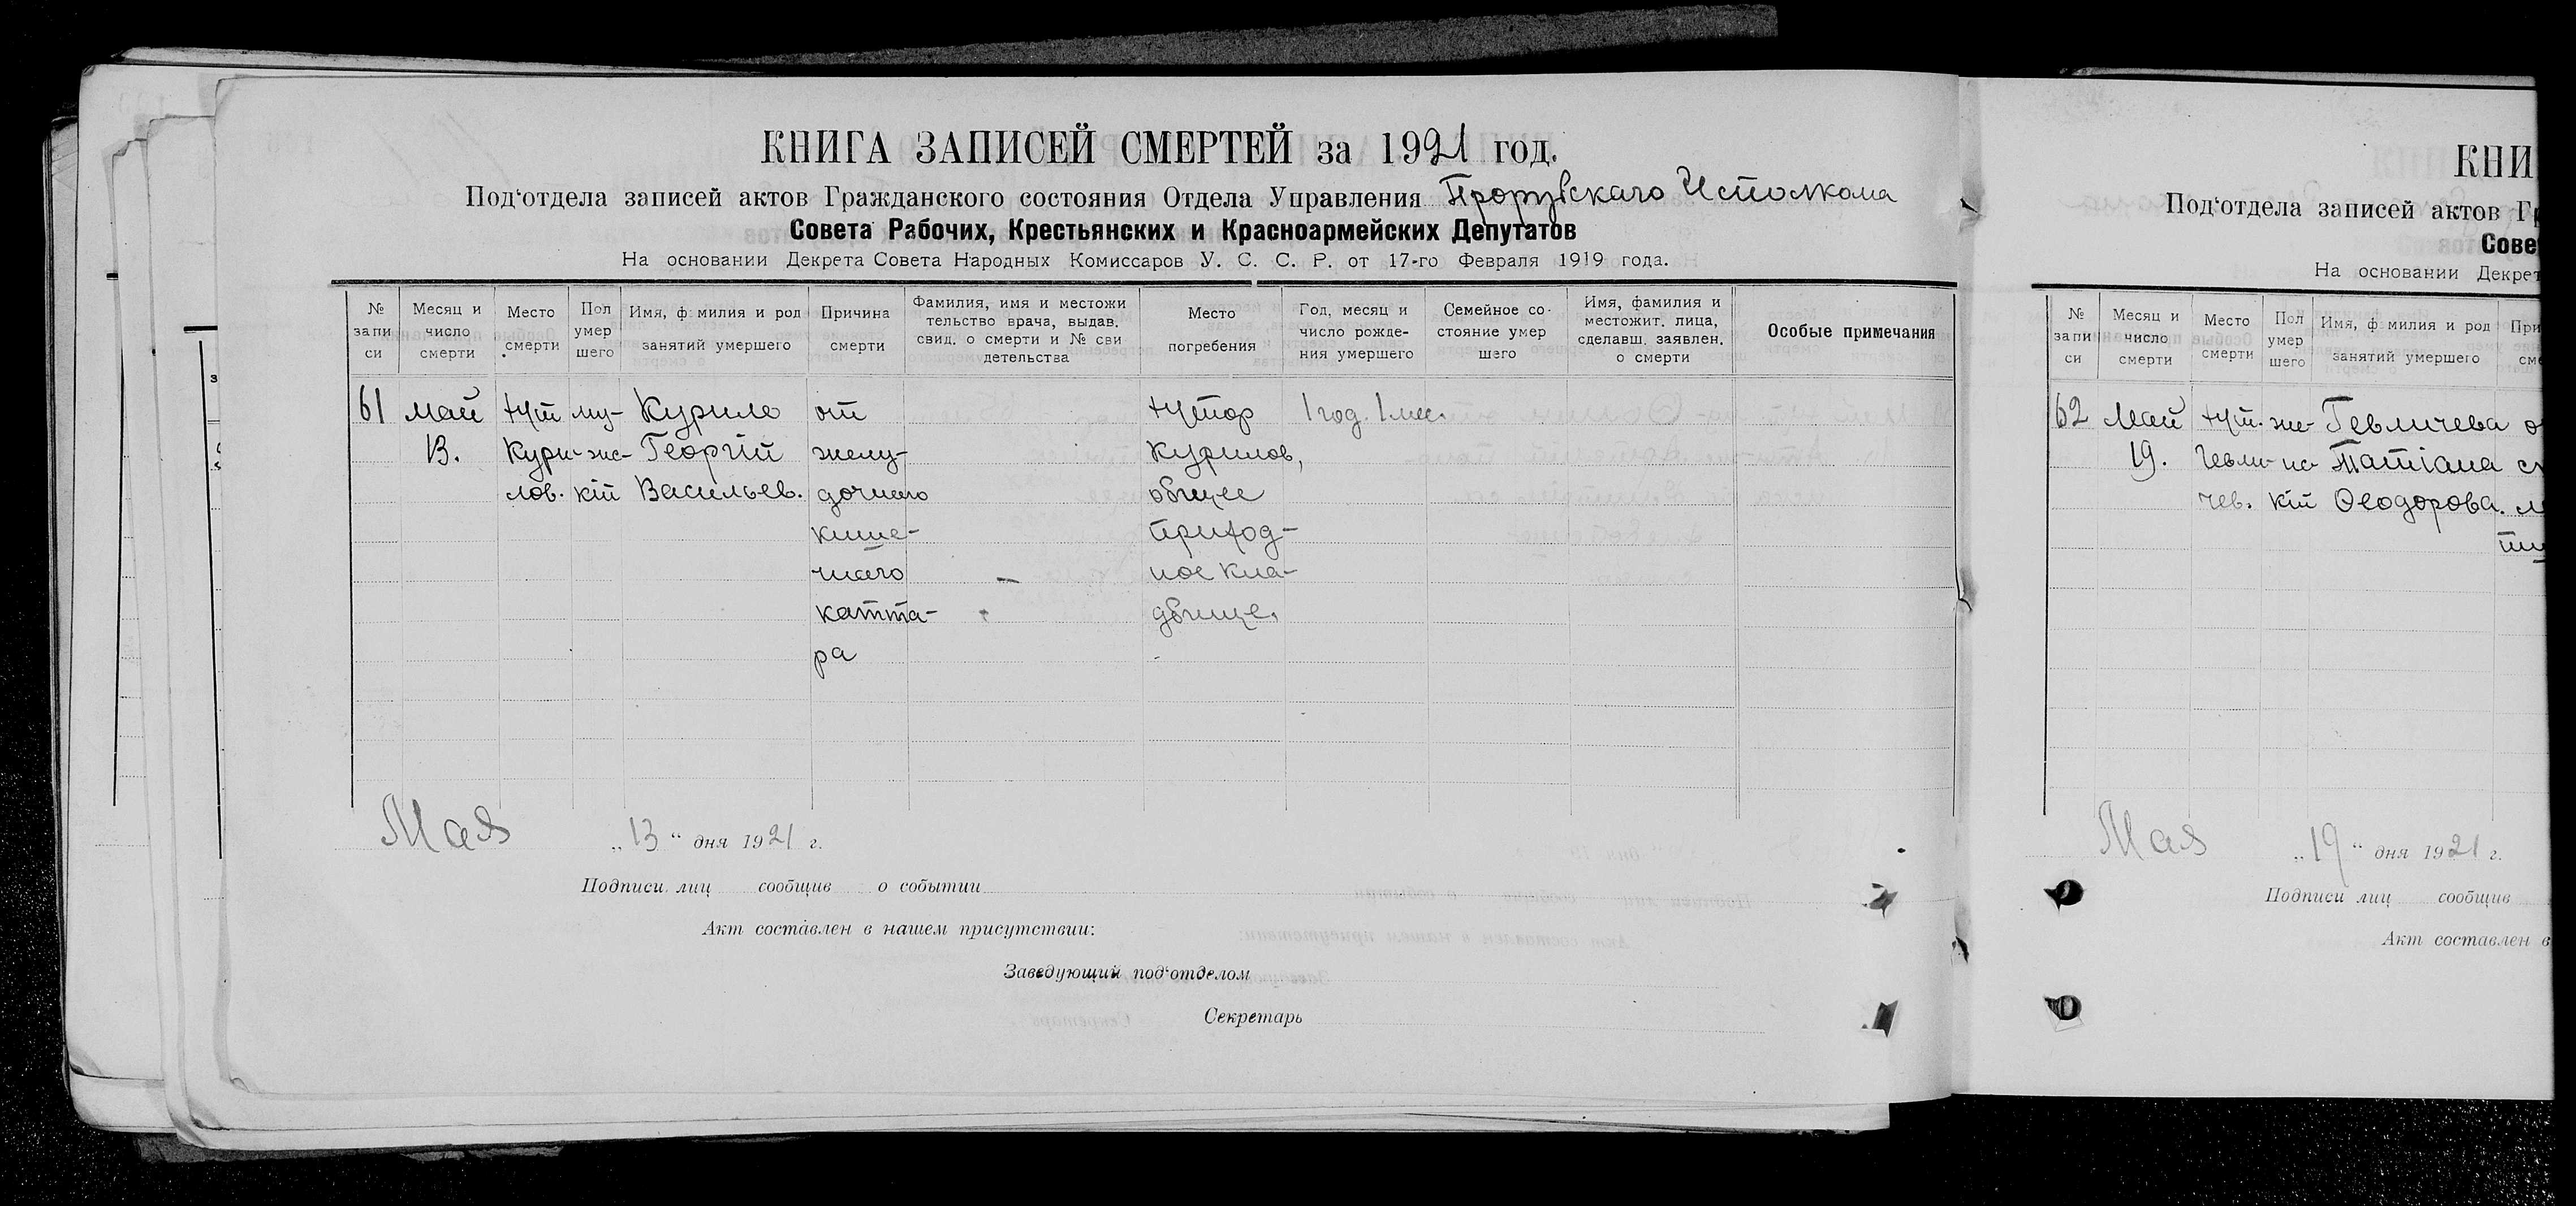 КНИГА ЗАПИСЕЙ СМЕРТЕЙ за 1921 год.
Под‘отдела записей актов Гражданского состояния Отдела Управления Исполкома
Совета Рабочих, Крестьянских и Красноармейских Депутатов
На основании Декрета Совета Народных Комиссаров У. С. С. Р. от 17-го Февраля 1919 года.
№ запи си
Месяц и число смерти
Место смерти
Пол умер шего
Имя, фамилия и род занятий умершего
Причина смерти
Фамилия, имя и местожи тельство врача, выдав. свид. о смерти и № сви детельства
Место погребения
Год, месяц и число рожде- ния умершего
Семейное со- стояние умер шего
Имя, фамилия и местожит. лица, сделавш. заявлен. о смерти
Особые примечания
61 май хут му- Курило от хутор 1 год. 1 мес.
13. Кури- жс- Георгій желу- Курилов,
лов. кій Васильев. дочного общее
кише- приход-
чнаго ное кла-
катта- дбище.
ра
Мая „13“ дня 1921 г.
Подписи лиц сообщив о событии
Акт составлен в нашем присутствии:
Заведующий под‘отделом
Секретарь
КНИ
Под‘отдела записей актов Гр
Сове
На основании Декрет
№ запи си
Месяц и число смерти
Место смерти
Пол умер шего
Имя, фамилия и род занятий умершего
При сме
62 Май хут. же- Гевличева о
19. Гевли- нс- Татіана
чев. кій Ѳеодорова.
Мая „19“ дня 1921 г.
Подписи лиц сообщив
Акт составлен в